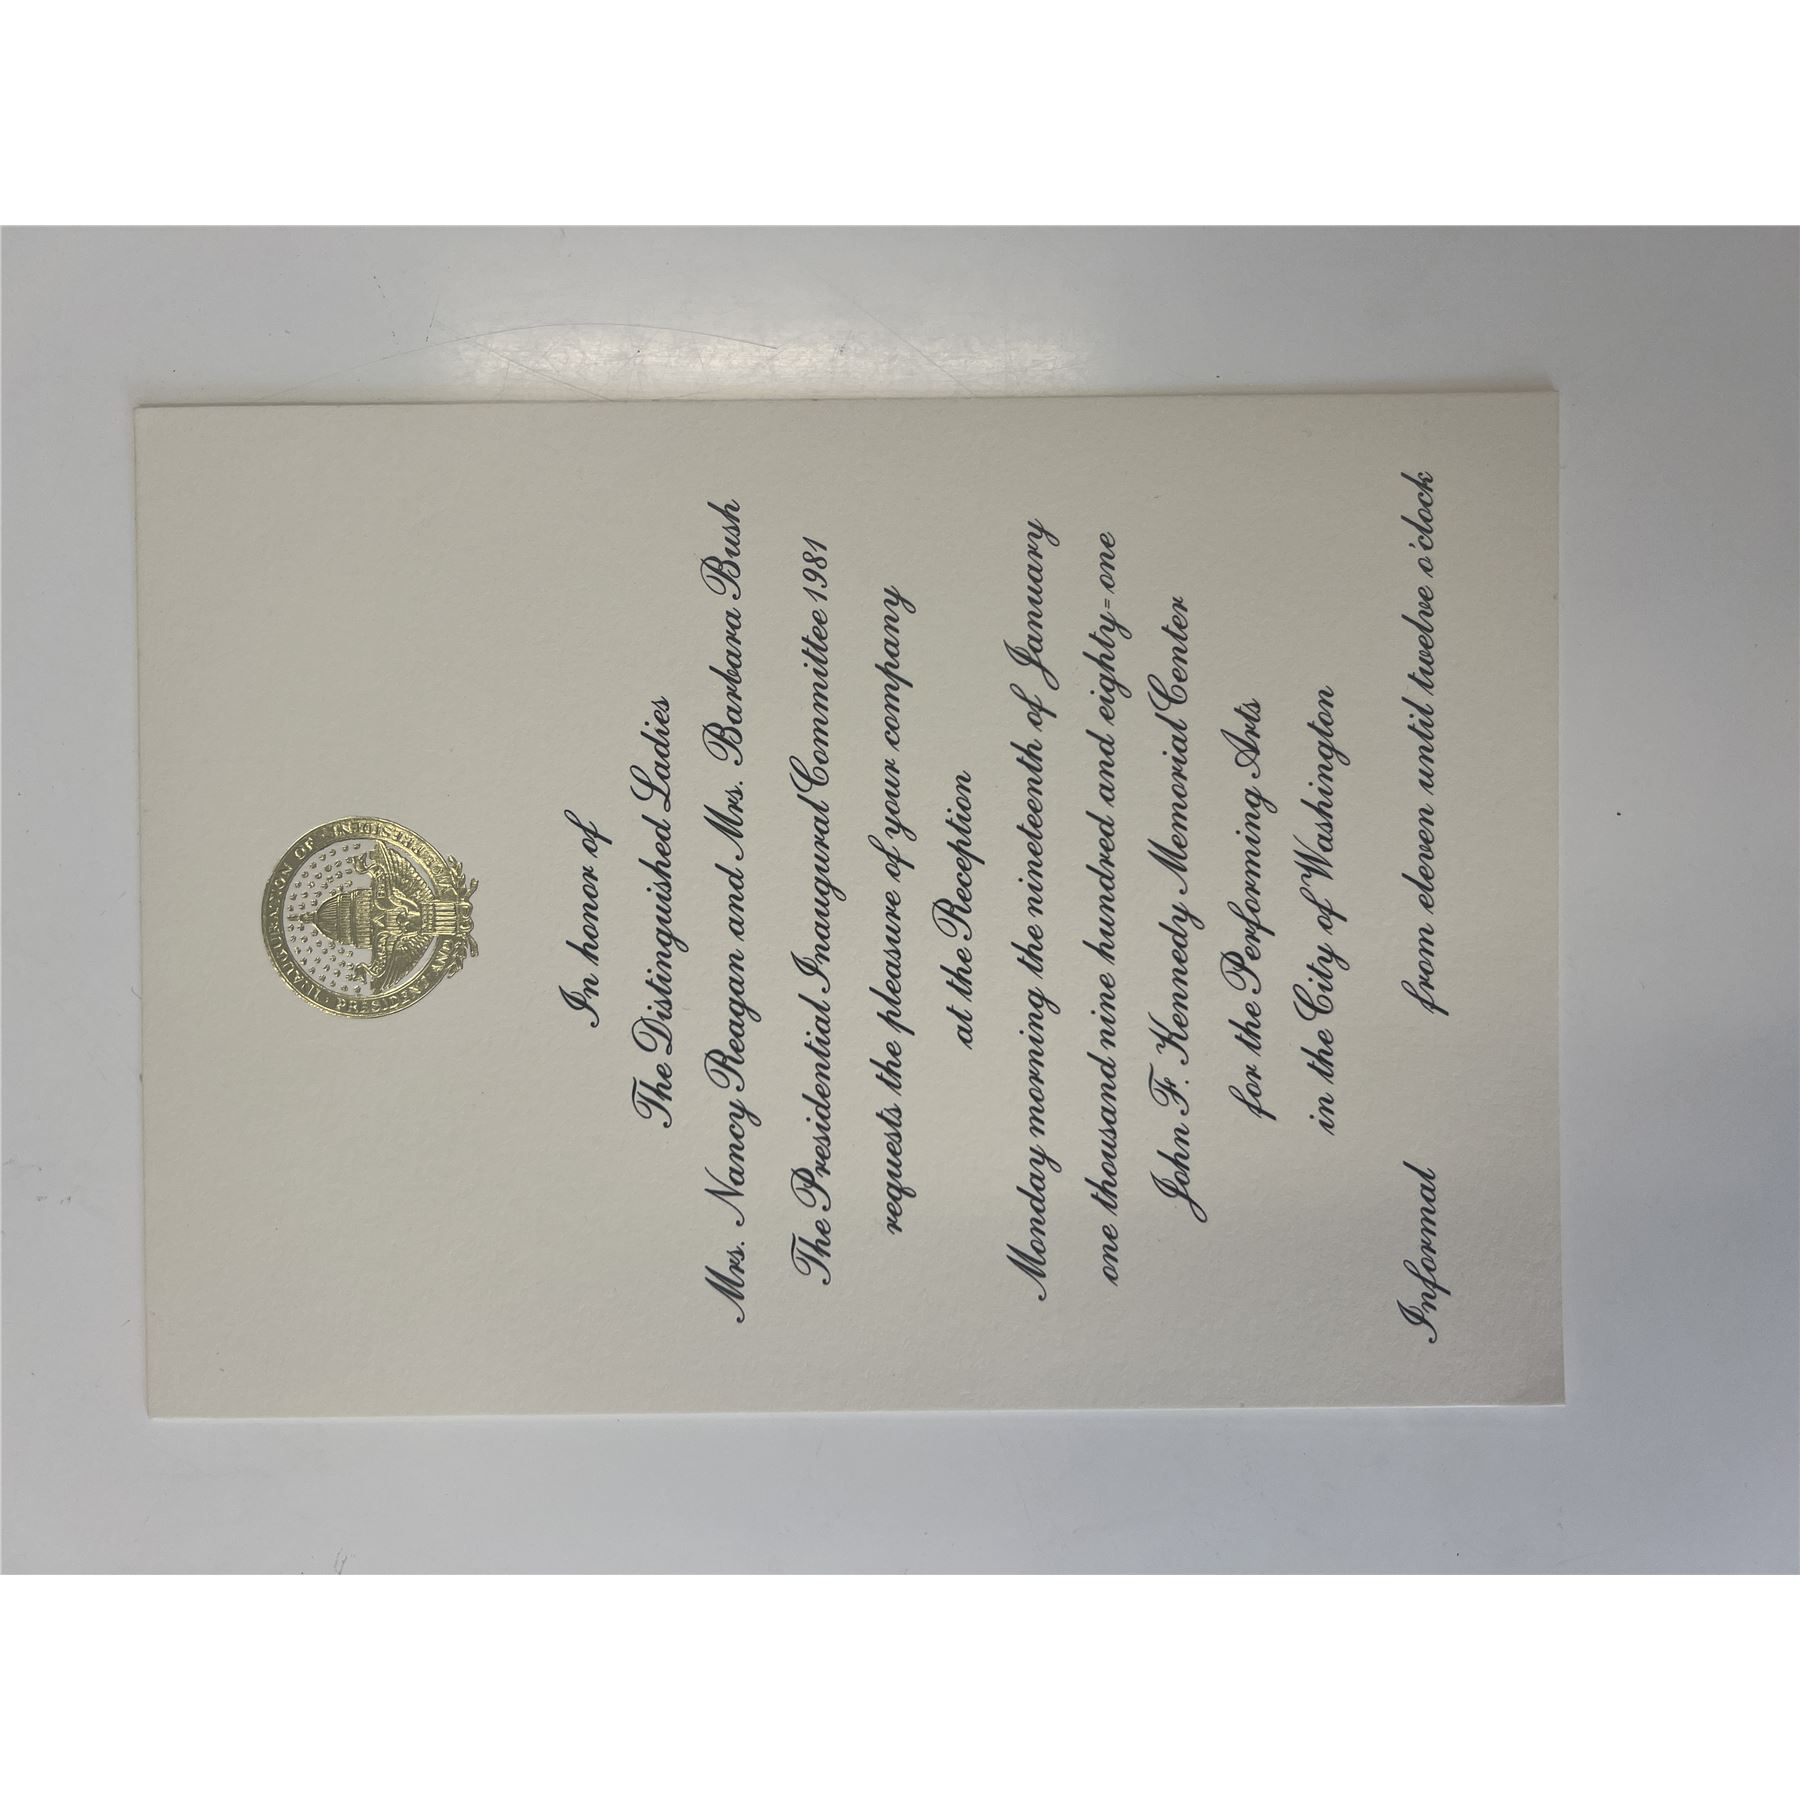 INAUGURATION OF
PRESIDENT AND
In honor of
The Distinguished Ladies
Mrs. Nancy Reagan and Mrs. Barbara Bush
The Presidential Inaugural Committee 1981
requests the pleasure of your company
at the Reception
Monday morning the nineteenth of January
one thousand nine hundred and eighty=one
John F. Kennedy Memorial Center
for the Performing Arts
in the City of Washington
Informal from eleven until twelve o'clock